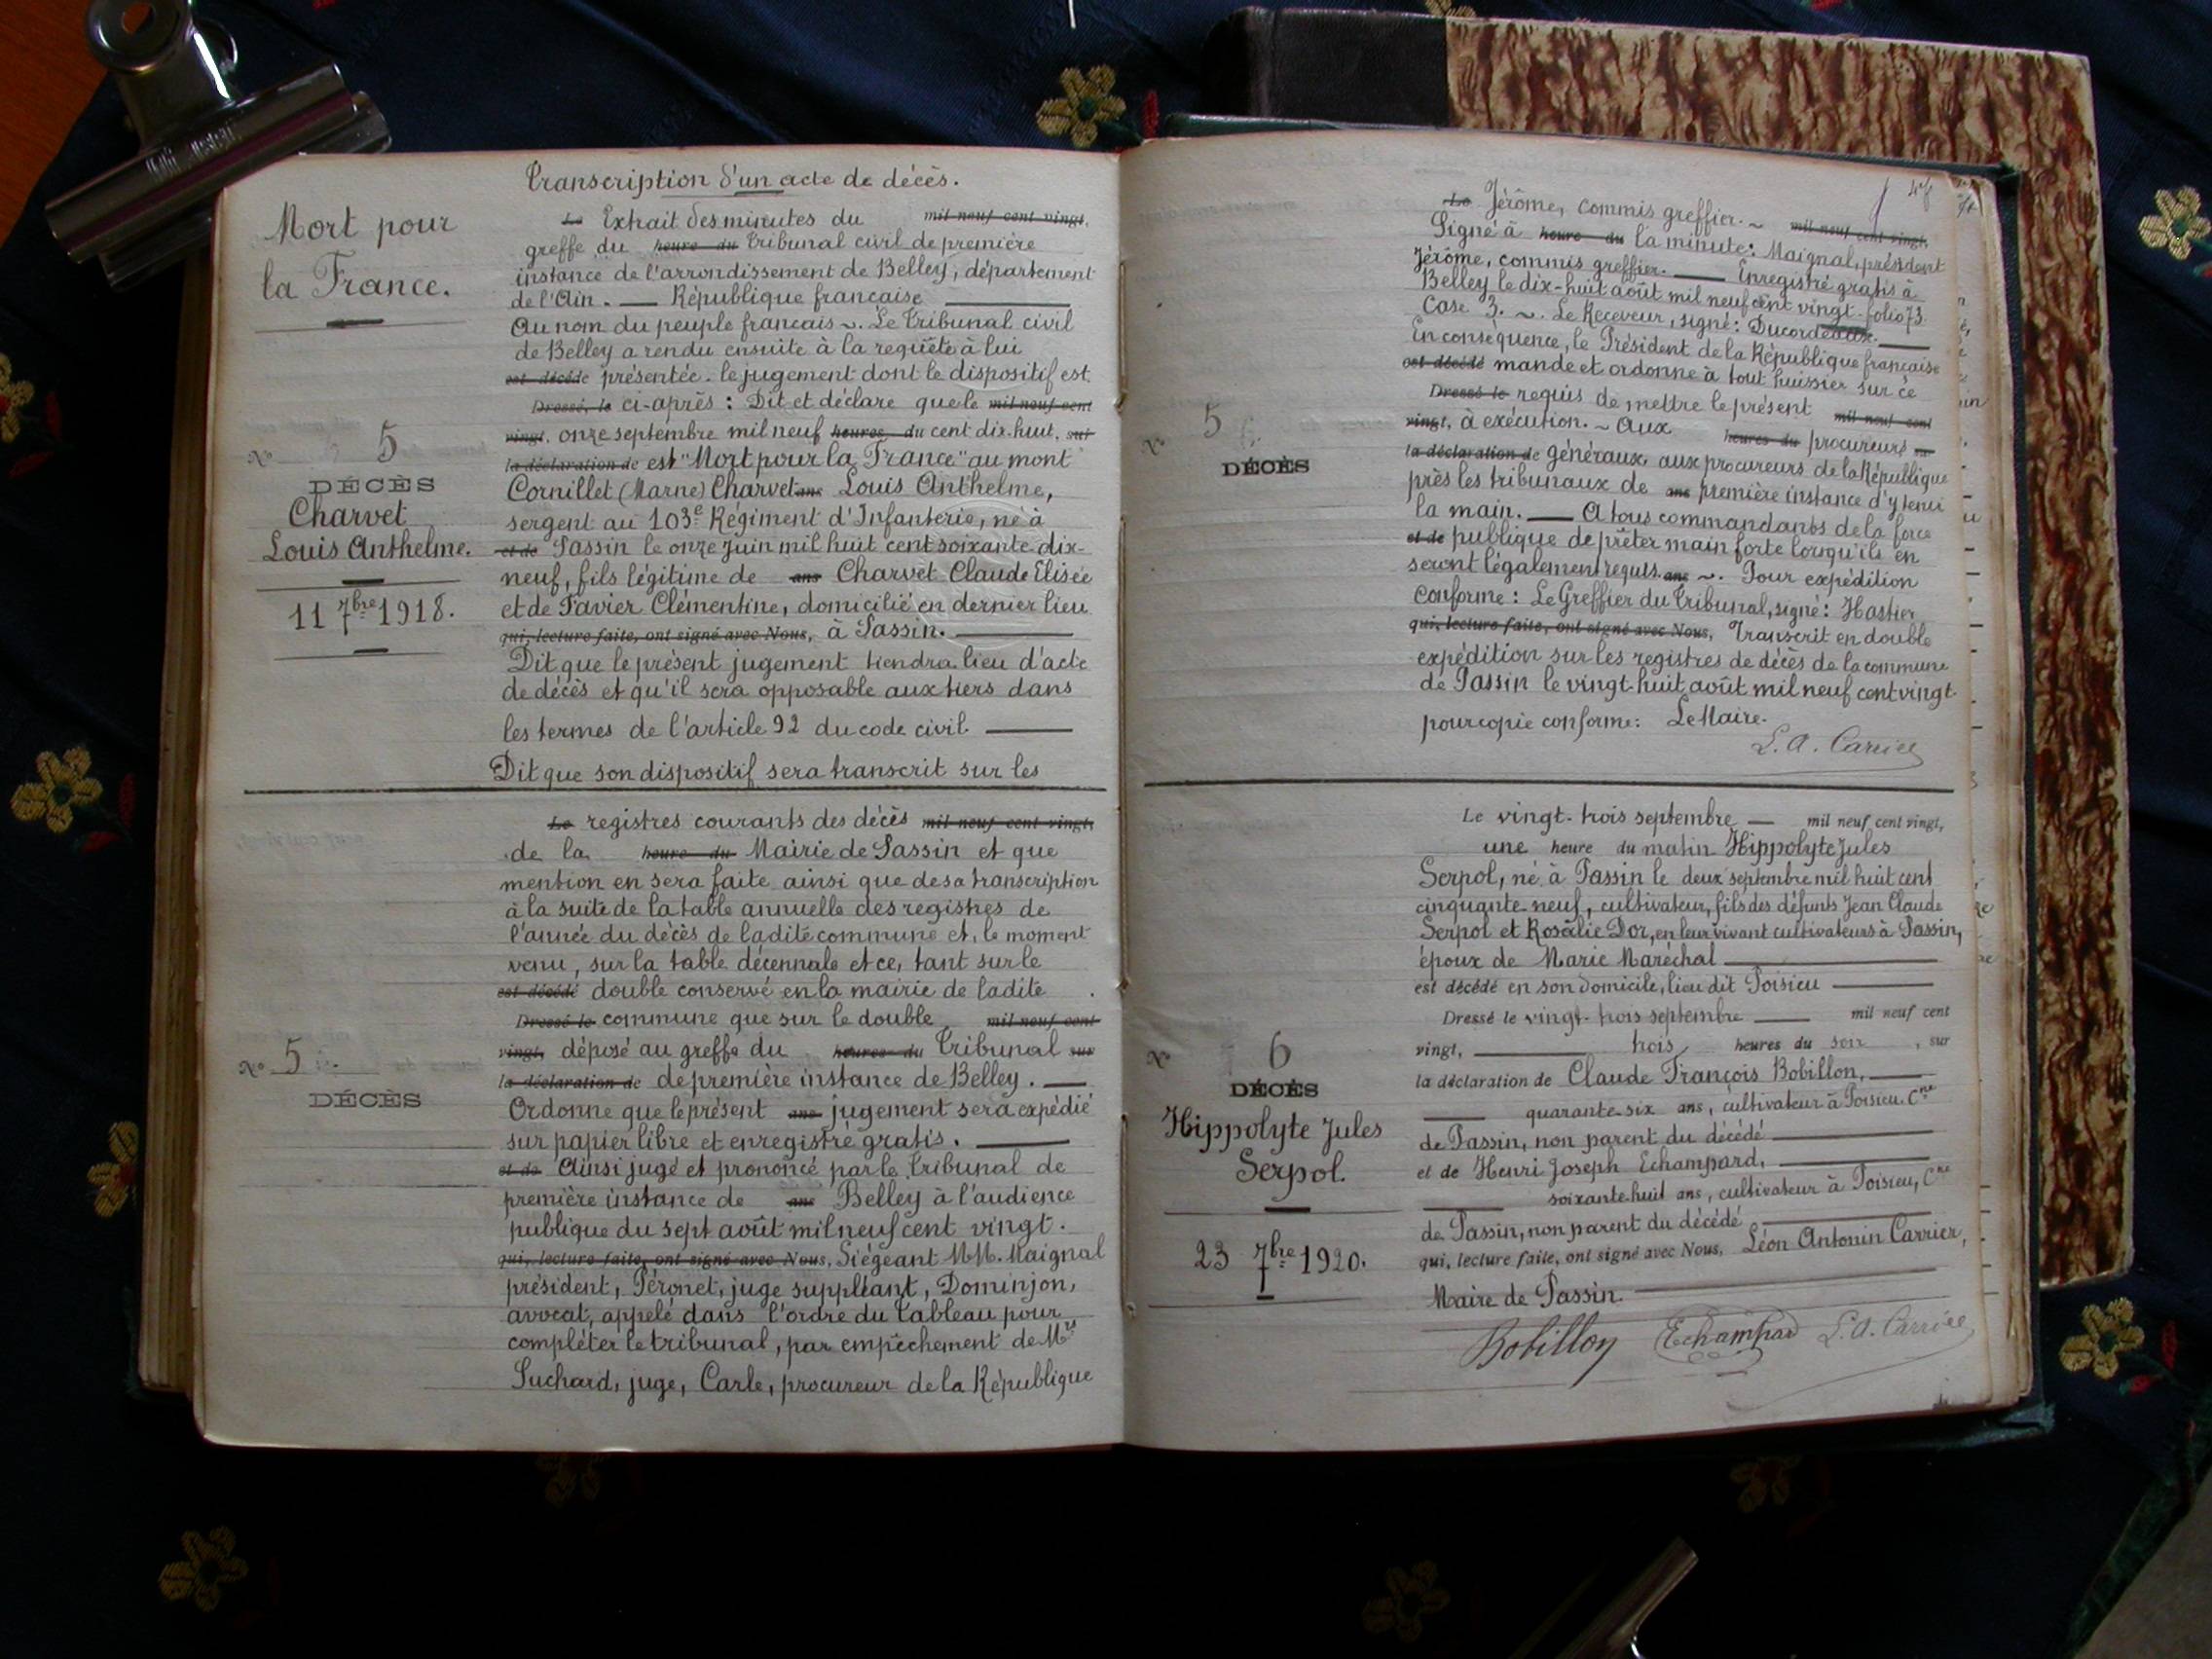 Transcription d'un acte de décès.
Mort pour
la France.
N° 5
DÉCÈS
Charvet
Louis Anthelme.
11 7bre 1918.
Le Extrait des minutes du mil neuf cent vingt,
greffe du heure du Tribunal civil de première
instance de l'arrondissement de Belley, département
de l'Ain. — République française —
Au nom du peuple français ~. Le Tribunal civil
de Belley a rendu ensuite à la requête à lui
est décédé présentée. le jugement dont le dispositif est
Dressé, le ci-après : Dit et déclare que le mil neuf cent
vingt, onze septembre mil neuf heures du cent dix-huit, sur
la déclaration de est "Mort pour la France" au mont
Cornillet (Marne) Charvet ans Louis Anthelme,
sergent au 103e Régiment d'Infanterie, né à
et de Passin le onze Juin mil huit cent soixante dix-
neuf, fils légitime de ans Charvet Claude Elisée
et de Favier Clémentine, domicilié en dernier lieu
qui, lecture faite, ont signé avec Nous, à Passin. —
Dit que le présent jugement tiendra lieu d'acte
de décès et qu'il sera opposable aux tiers dans
les termes de l'article 92 du code civil —
Dit que son dispositif sera transcrit sur les
N° 5
DÉCÈS
Le registres courants des décès mil neuf cent vingt,
de la heure du Mairie de Passin et que
mention en sera faite ainsi que de sa transcription
à la suite de la table annuelle des registres de
l'année du décès de ladite commune et, le moment
venu, sur la table décennale et ce, tant sur le
est décédé double conservé en la mairie de ladite
Dressé le commune que sur le double mil neuf cent
vingt, déposé au greffe du heures du Tribunal sur
la déclaration de de première instance de Belley. —
Ordonne que le présent ans jugement sera expédié
sur papier libre et enregistré gratis. —
et de Ainsi jugé et prononcé par le Tribunal de
première instance de ans Belley à l'audience
publique du sept août mil neuf cent vingt.
qui, lecture faite, ont signé avec Nous, Siégeant MM. Maignal
président, Péronet, juge suppléant, Dominjon,
avocat, appelé dans l'ordre du Tableau pour
compléter le tribunal, par empêchement de Mrs
Suchard, juge, Carle, procureur de la République
N° 5
DÉCÈS
Le Jérôme, commis greffier. ~ mil neuf cent vingt,
Signé à heure du la minute: Maignal, président
Jérôme, commis greffier. — Enregistré gratis à
Belley le dix-huit août mil neuf cent vingt folio 73
Case 3. ~. Le Receveur, signé: Ducordeaux. —
En conséquence, le Président de la République française
est décédé mande et ordonne à tout huissier sur ce
Dressé le requis de mettre le présent mil neuf cent
vingt, à exécution. ~ Aux heures du procureurs sur
la déclaration de généraux, aux procureurs de la République
près les tribunaux de ans première instance d'y tenir
la main. — A tous commandants de la force
et de publique de prêter main forte lorsqu'ils en
seront légalement requis. ans ~. Pour expédition
conforme: Le Greffier du Tribunal, signé: Hostier
qui, lecture faite, ont signé avec Nous, Transcrit en double
expédition sur les registres de décès de la commune
de Passin le vingt-huit août mil neuf cent vingt.
pour copie conforme: Le Maire.
L. A. Carrier
N° 6
DÉCÈS
Hippolyte Jules
Serpol.
23 7bre 1920.
Le vingt-trois septembre — mil neuf cent vingt,
une heure du matin Hippolyte Jules
Serpol, né à Passin le deux septembre mil huit cent
cinquante-neuf, cultivateur, fils des défunts Jean Claude
Serpol et Rosalie Dor, en leur vivant cultivateurs à Passin,
époux de Marie Maréchal —
est décédé en son domicile, lieu dit Poisieu —
Dressé le vingt-trois septembre — mil neuf cent
vingt, — trois heures du soir, sur
la déclaration de Claude François Bobillon, —
— quarante-six ans, cultivateur à Poisieu, Cne
de Passin, non parent du décédé —
et de Henri Joseph Echampard, —
— soixante-huit ans, cultivateur à Poisieu, Cne
de Passin, non parent du décédé —
qui, lecture faite, ont signé avec Nous, Léon Antonin Carrier,
Maire de Passin. —
Bobillon Echampard L. A. Carrier